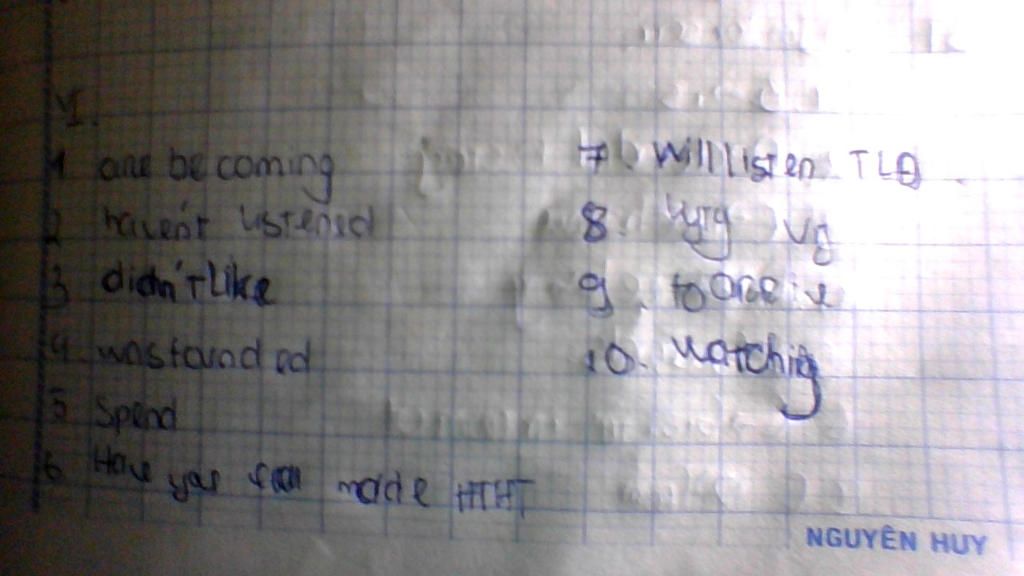 VI.
1 are becoming
2 haven't listened
3 didn't like
4 was founded
5 Spend
6 Have you made HTHT
7. will listen TLĐ
8.
9. to
10. watching
NGUYÊN HUY